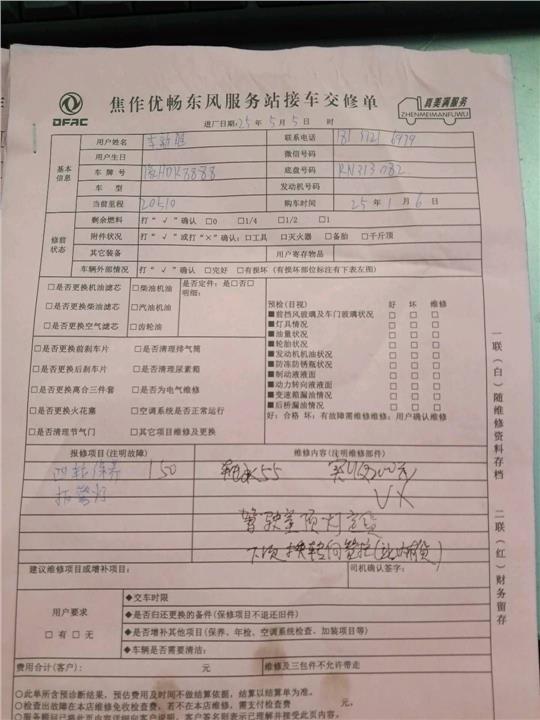 DFAC
焦作优畅东风服务站接车交修单
真美满服务
ZHENMEIMANFUWU
进厂日期:25 年 5 月 5 日 时
基本信息
用户姓名 联系电话
用户生日 微信号码
车牌号 豫HDK8888 底盘号码 RN313082
车型 发动机号码
当前里程 20510 购车时间 25 年 1 月 6 日
修前状态
剩余燃料 打“√”确认 □0 □1/4 □1/2 □1
附件状况 打“√”或打“×”确认:□工具 □灭火器 □备胎 □千斤顶
其它装备 用户寄存物品
车辆外部情况 打“√”确认 □完好 □有损坏(有损坏部位标注有下表左图)
□是否更换机油滤芯 □柴油机油 是否定件:是□否□
明细:
□是否更换柴油滤芯 □汽油机油
□是否更换空气滤芯 □齿轮油
□是否更换前刹车片 □是否清理排气筒
□是否更换后刹车片 □是否清理尿素箱
□是否更换离合三件套 □是否为电气维修
□是否更换火花塞 □空调系统是否正常运行
□是否清理节气门 □其它项目维修及更换
预检(目视) 好 坏 维修
■前挡风玻璃及车门玻璃状况 □ □ □
■灯具情况 □ □ □
■油量状况 □ □ □
■轮胎状况 □ □ □
■发动机机油状况 □ □ □
■防冻防锈液面 □ □ □
■制动液液面 □ □ □
■动力转向液液面 □ □ □
■变速箱漏油情况 □ □ □
■后桥漏油情况 □ □ □
好:合格 坏:有故障需维修维修:用户确认维修
报修项目(注明故障) 维修内容(注明维修部件)
保养 150 55
驾驶室顶灯
建议维修项目或增补项目: 司机确认签字:
用户要求
□有 □无
◆交车时限
◆是否归还更换的备件(保修项目不退还旧件)
◆是否增补其他项目(保养、年检、空调系统检查、加装项目等)
◆车辆是否需要清洁:
费用合计(客户): 元 维修及三包件不允许带走
○此单所含预诊断结果,预估费用及时间不做结算依据,结算以结算单为准。
○检查出故障在本店维修免收检查费,若不在本店维修,需支付检查费 元。
一联(白)随维修资料存档
二联(红)财务留存